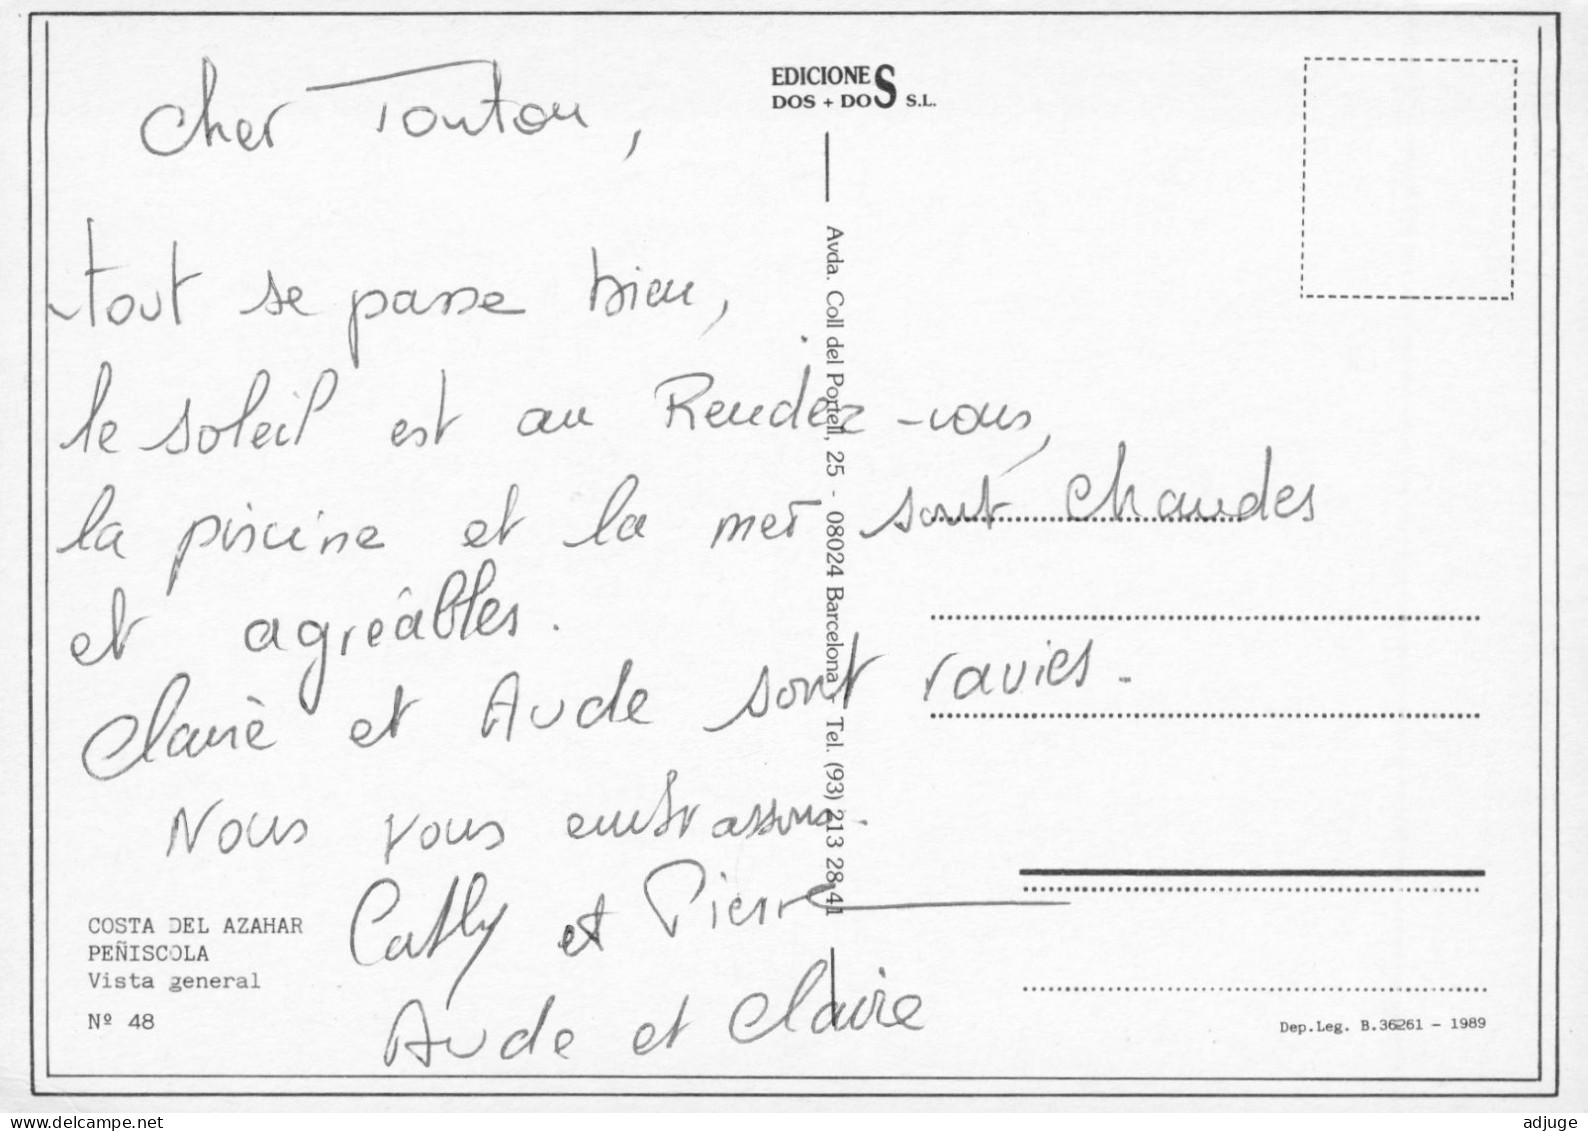 cher Tonton,
tout se passe bien,
le soleil est au Rendez-vous,
la piscine et la mer sont chaudes
et agréables.
Claire et Aude sont ravies.
Nous vous embrassons.
Cathy et Pierre
Aude et Claire
COSTA DEL AZAHAR
PEÑISCOLA
Vista general
Nº 48
EDICIONES
DOS + DOS S.L.
Avda. Coll del Portell, 25 - 08024 Barcelona - Tel. (93) 213 28 41
Dep.Leg. B.36261 - 1989
www.delcampe.net
adjuge